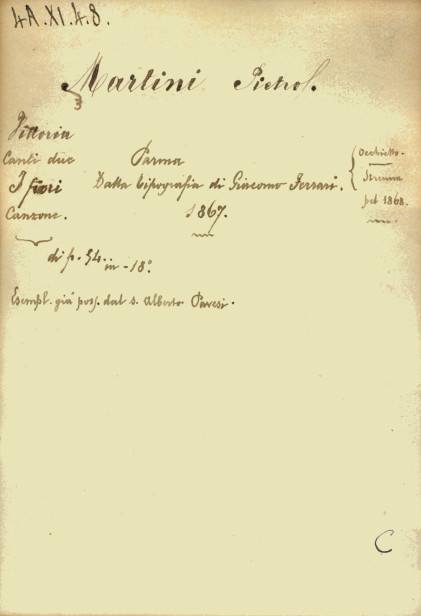 4A.XI.4.8.
Martini Pietro.
Vittoria
Canti due
I fiori
Canzone.
Parma
Dalla tipografia di Giacomo Ferrari.
1867.
Occhietto.
Strenna
pel 1868.
di p. 54 in-18°.
Esempl. già poss. dal s. Alberto Pavesi.
C